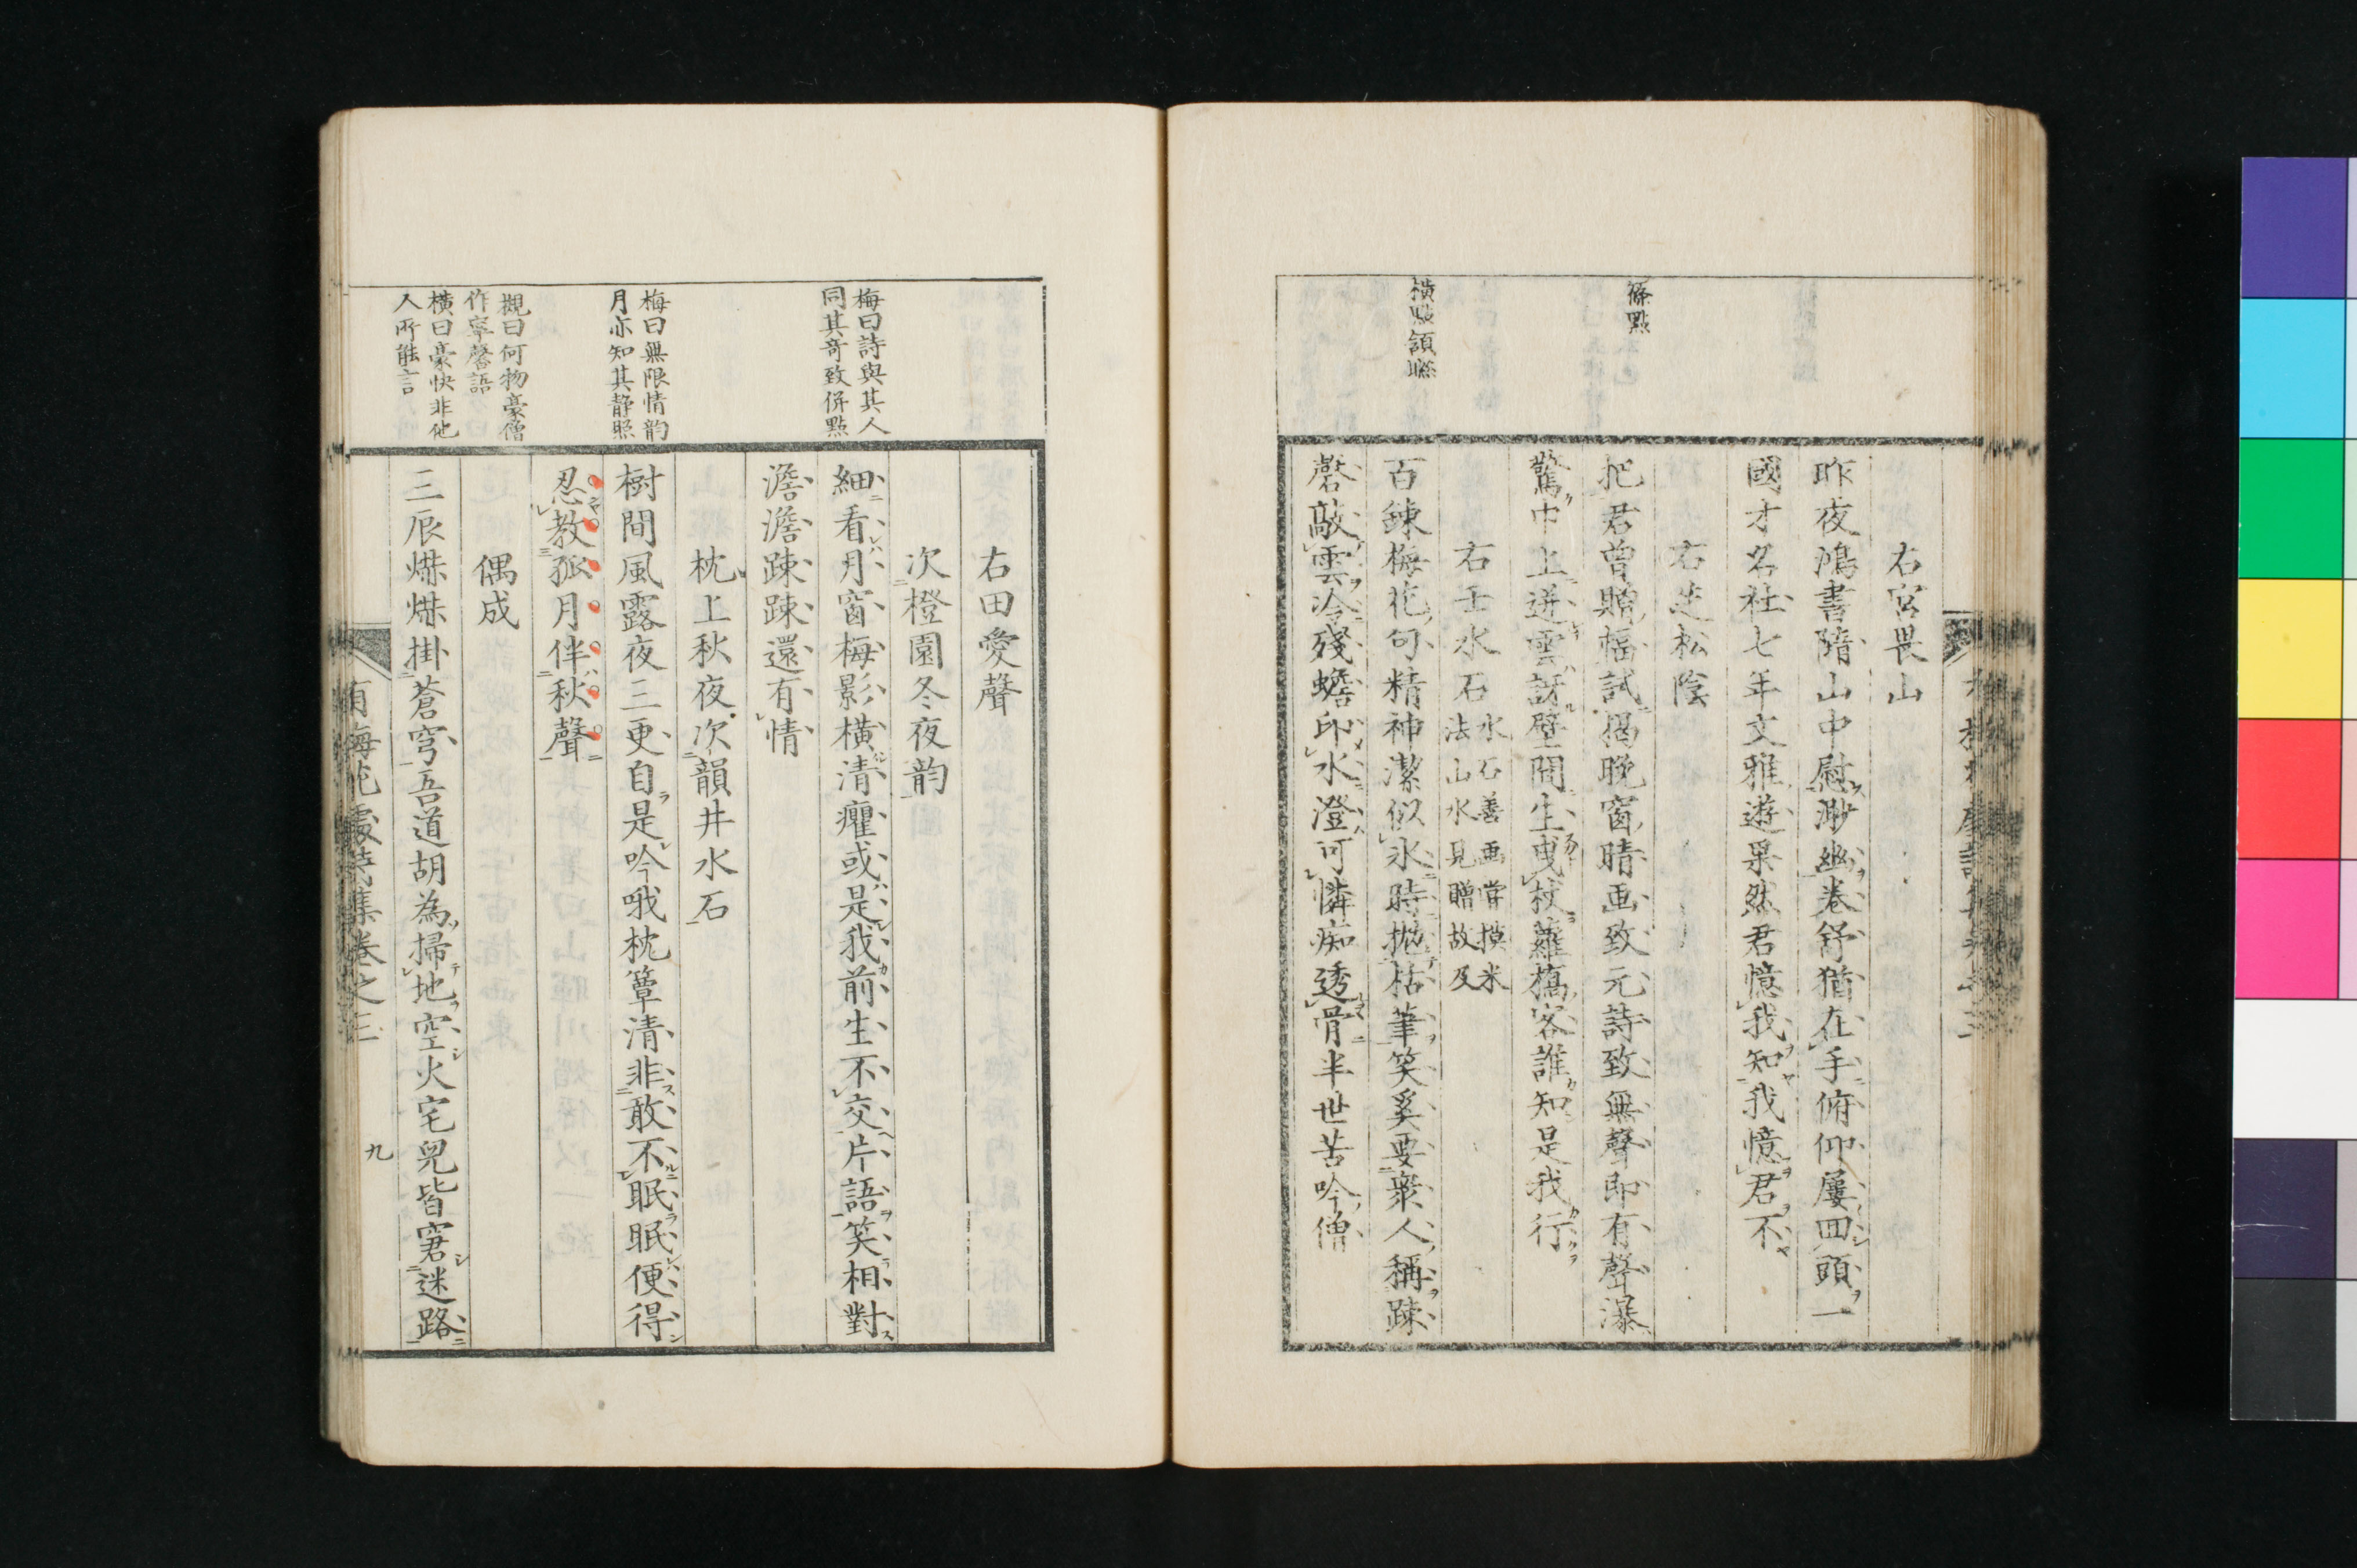 篠點
橫點頷聯
右宮畏山
昨夜鴻書隋山中慰渺幽卷舒猶在手俯仰屢回頭一
國才名社七年文雅遊果然君憶我知我憶君不
右芝松陰
把君曾贈幅試揭晚窗晴画致元詩致無聲即有聲瀑
驚中上迸雲訝壁間生曳杖蘿橋客誰知是我行
右壬水石
水石善画嘗摸米
法山水見贈故及
百鍊梅花句精神潔似氷時拋枯筆笑奚要衆人稱疎
磬敲雲冷殘蟾印水澄可憐痴透骨半世苦吟僧
梅曰詩與其人
同其奇致併點
梅曰無限情韵
月亦知其靜照
觀曰何物豪僧
作寧馨語
橫曰豪快非他
人所能言
右田愛聲
次橙園冬夜韵
細看月窗梅影橫清癯或是我前生不交片語笑相對
澹澹疎疎還有情
枕上秋夜次韻井水石
樹間風露夜三更自是吟哦枕簟清非敢不眠眠便得
忍教孤月伴秋聲
偶成
三辰爀爀掛蒼穹吾道胡為掃地空火宅兒皆窘迷路
有梅花處詩集卷之三
九